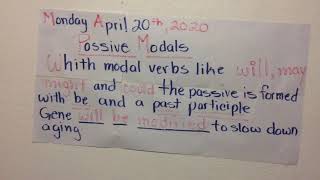 Monday April 20th, 2020
Passive Modals
Whith modal verbs like will, may
might and could the passive is formed
with be and a past participle
Gene will be modified to slow down
aging